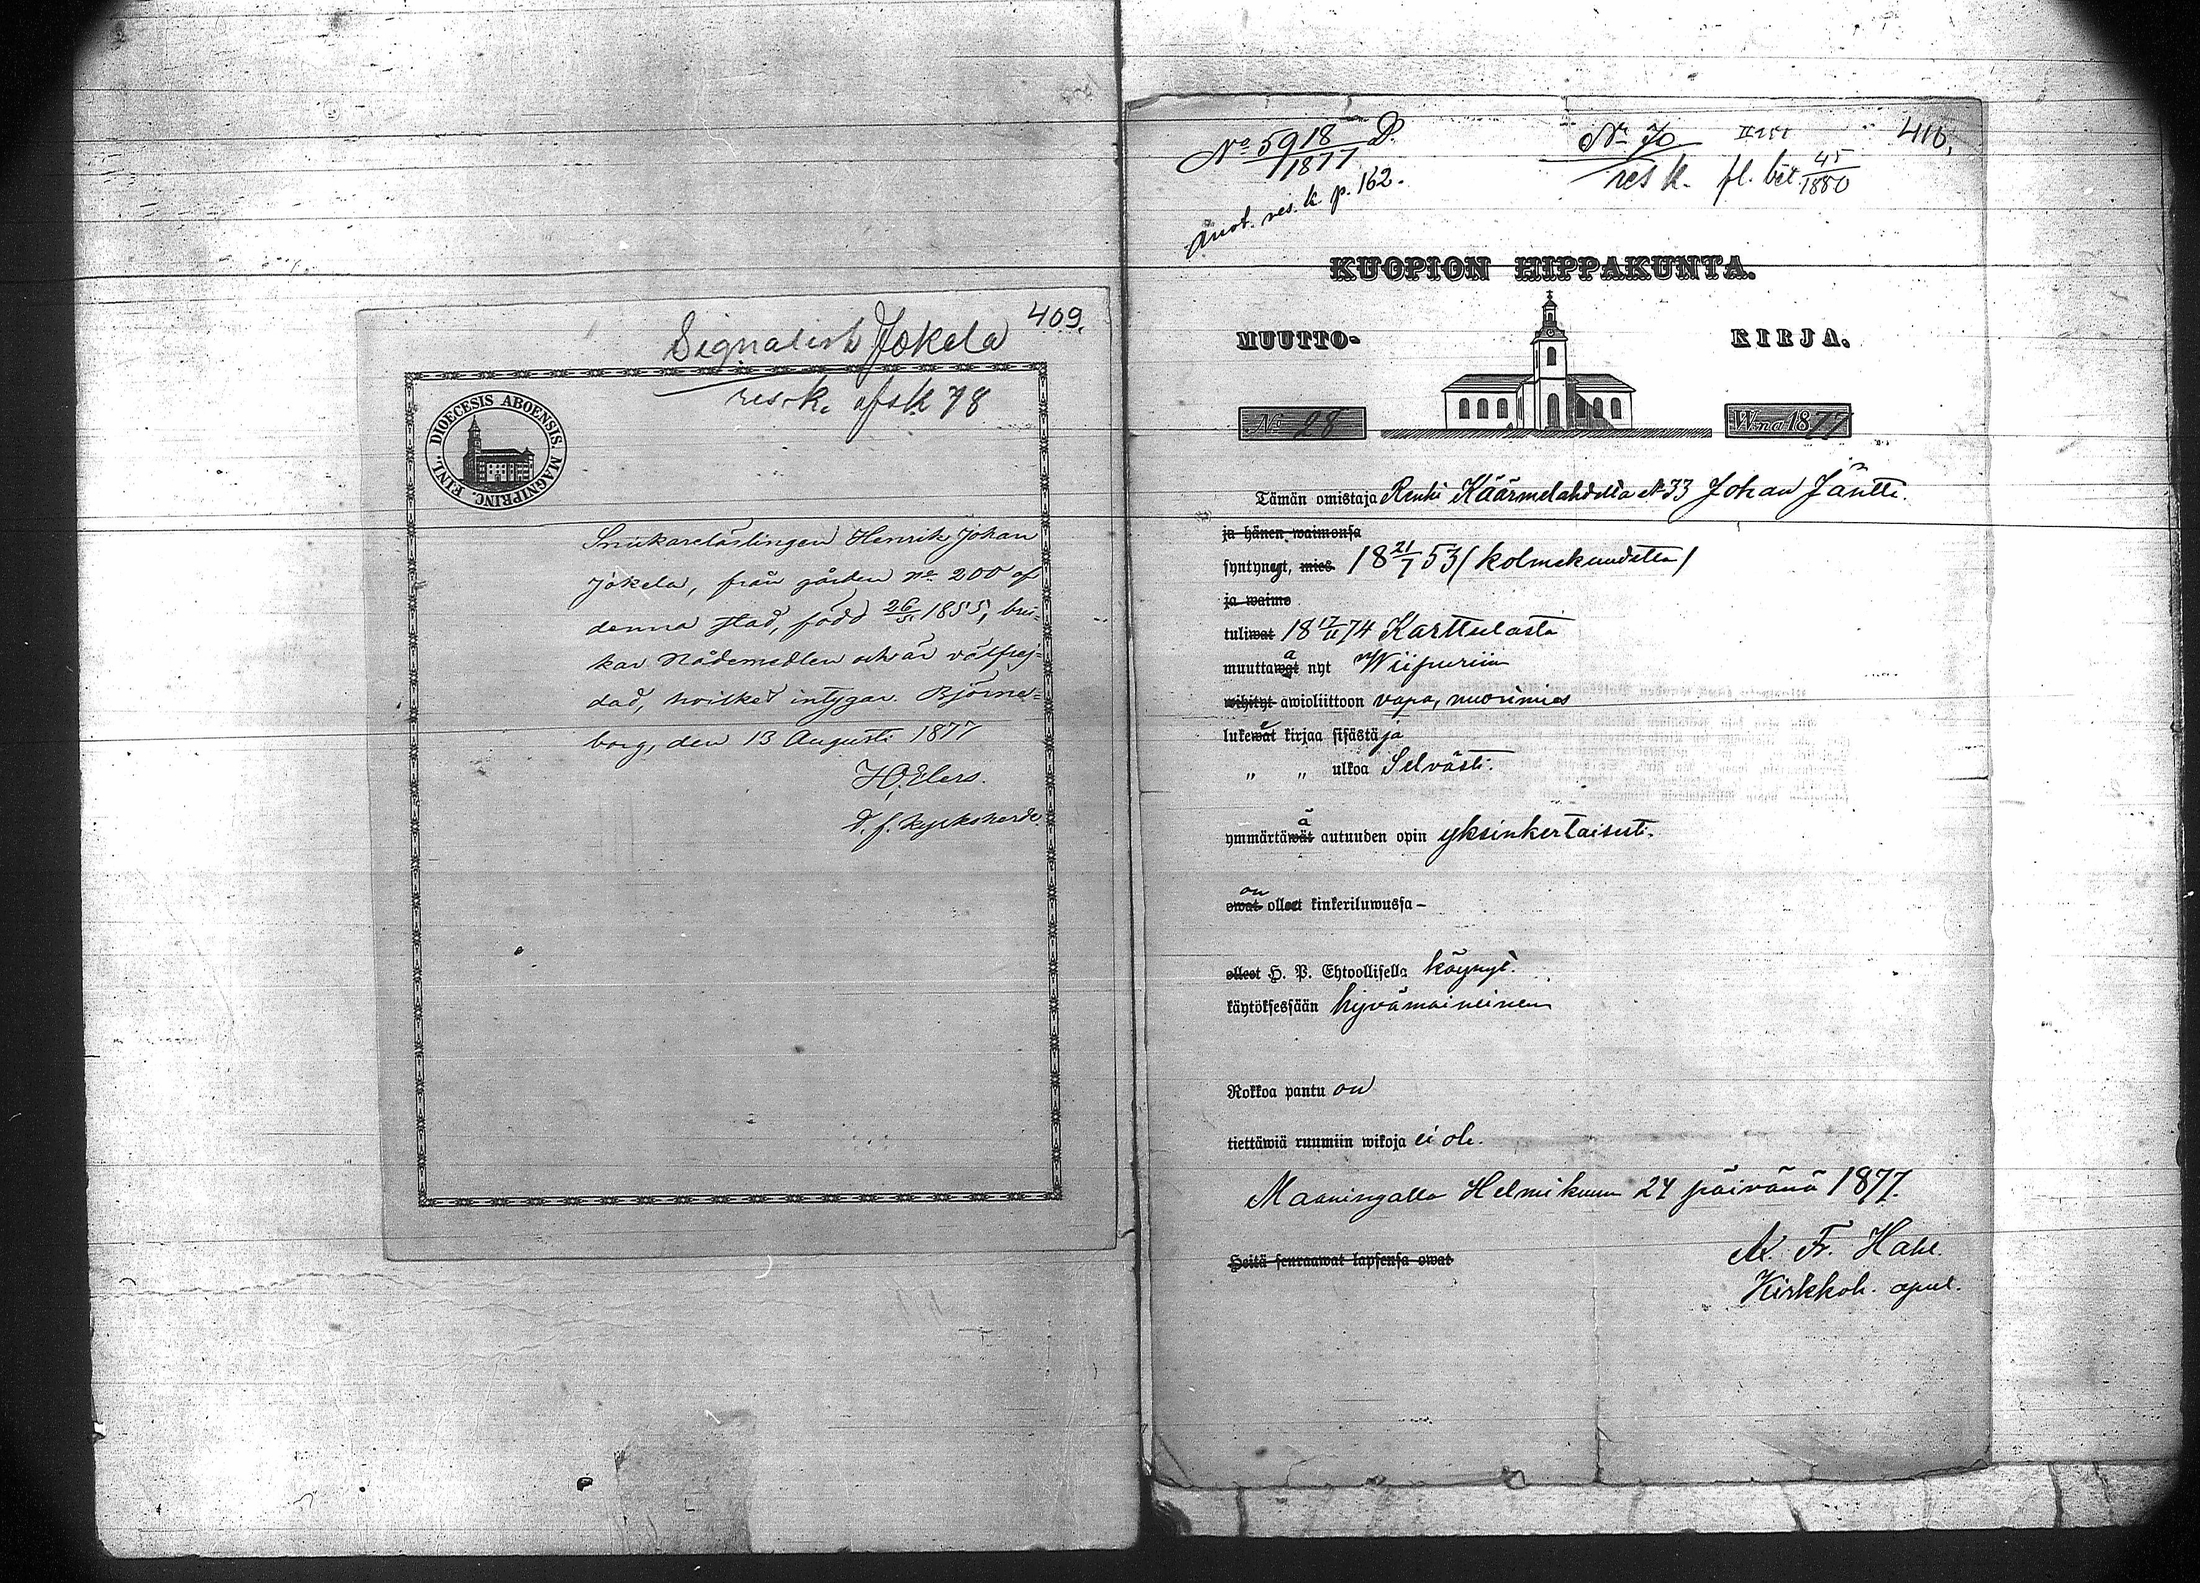 409.
Signalist Jokela
res. k. afsk 78
DIOECESIS ABOENSIS. MAGNIPRINC. FINL.
Snickarelärlingen Henrik Johan
Jokela, från gården No 200 af
denna stad, född 26/5 1855, bru-
kar Nådemedlen och är välfrej-
dad, hvilket intygar. Björne-
borg, den 13 Augusti 1877
H. Elers.
d. f. kyrkoherde.
No 5918/1877 D.
Anot. res. k p. 162.
No 70
res k.
fl. bet 45/1880
410.
KUOPION HIPPAKUNTA.
MUUTTO-
KIRJA.
No 28
W:na 1877
Tämän omistaja Renki Käärmelahdelta No 33 Johan Jäntti.
ja hänen waimonsa
syntynyt, mies 18 21/7 53 (kolmekuudetta)
ja waimo
tuliwat 18 17/11 74 Karttulasta
muuttawat a nyt Wiipuriin
wihityt awioliittoon vapa, nuorimies
lukewat kirjaa sisästä ja
„ „ ulkoa Selvästi.
ymmärtäwät ä autuuden opin yksinkertaisesti.
on
owat olleet kinkeriluwussa –
olleet H. P. Ehtoollisella käynyt.
käytöksessään hyvämaineinen
Rokkoa pantu on
tiettäwiä ruumiin wikoja ei ole.
Maaningalla Helmikuun 24 päivänä 1877.
Heitä seuraawat lapsensa owat
K. Fr. Hahl
Kirkkoh. apul.